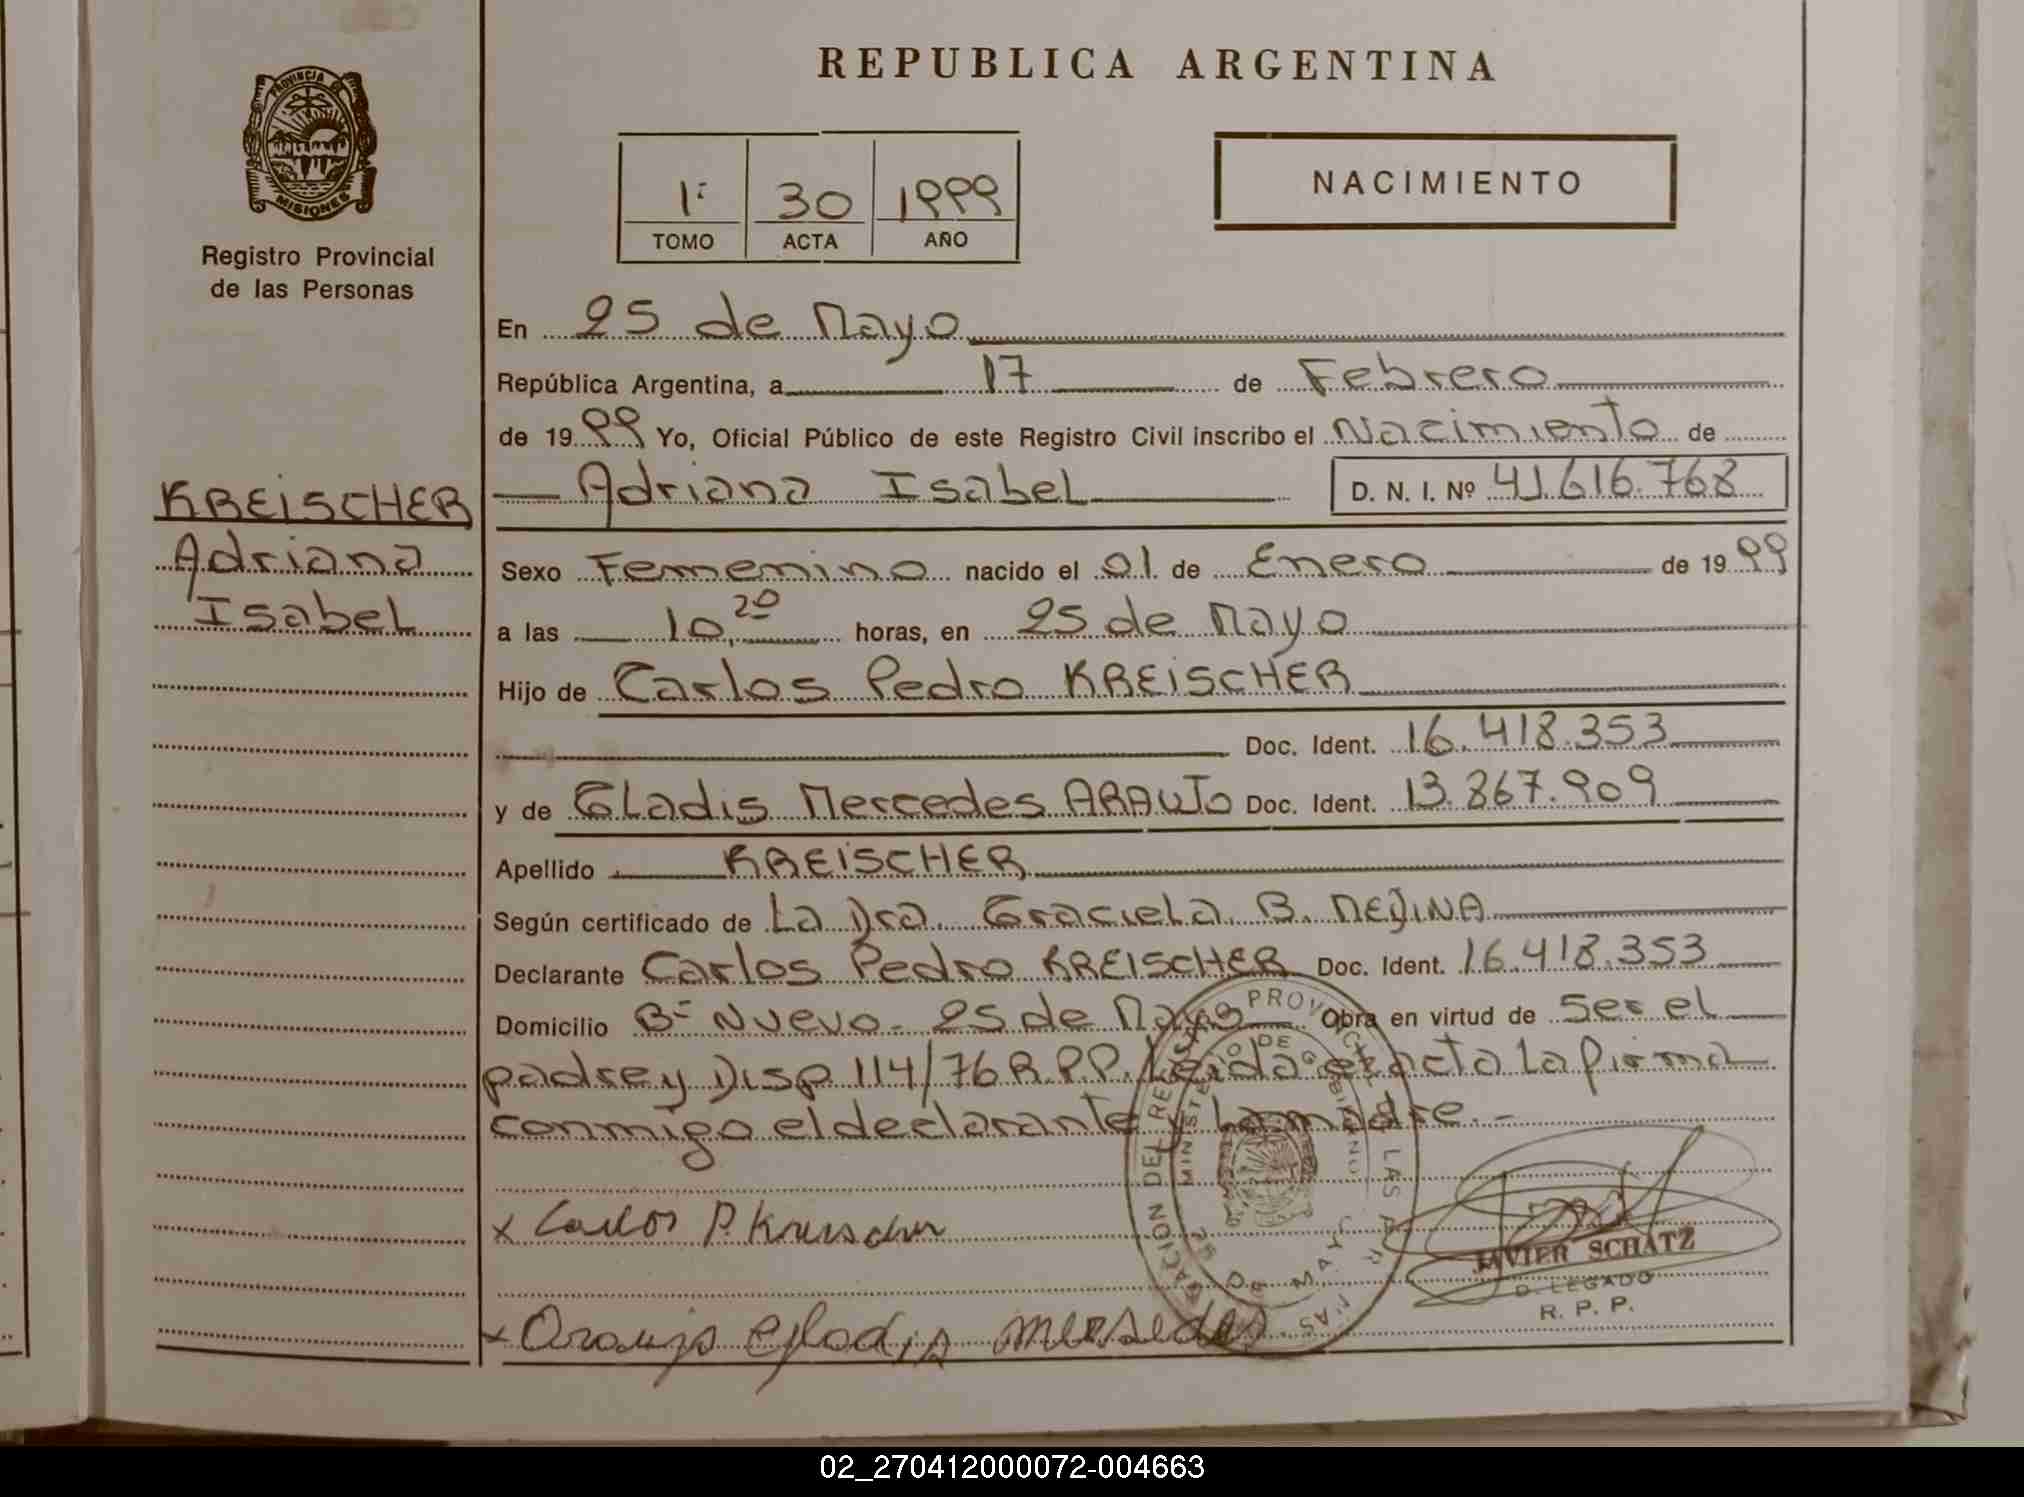 REPUBLICA ARGENTINA
PROVINCIA DE
MISIONES
Registro Provincial
de las Personas
1º 30 1999
TOMO ACTA AÑO
NACIMIENTO
En 25 de Mayo
República Argentina, a 17 de Febrero
de 1999 Yo, Oficial Público de este Registro Civil inscribo el Nacimiento de
Adriana Isabel D. N. I. Nº 41.616.768
KREISCHER
Adriana
Isabel
Sexo Femenino nacido el 01 de Enero de 1999
a las 10,20 horas, en 25 de Mayo
Hijo de Carlos Pedro KREISCHER
Doc. Ident. 16.418.353
y de GLadis Mercedes ARAUJO Doc. Ident. 13.867.909
Apellido KREISCHER
Según certificado de La Dra. GracieLa B. MEDINA
Declarante Carlos Pedro KREISCHER Doc. Ident. 16.418.353
Domicilio Bº Nuevo - 25 de Mayo Obra en virtud de Ser el
padre y Disp 114/76 R.P.P. Leida el acta La firma
conmigo el declarante y La madre.-
x Carlos P. Kreischer
JAVIER SCHATZ
DELEGADO
R. P. P.
x Araujo Gladis Mersedes
02_270412000072-004663